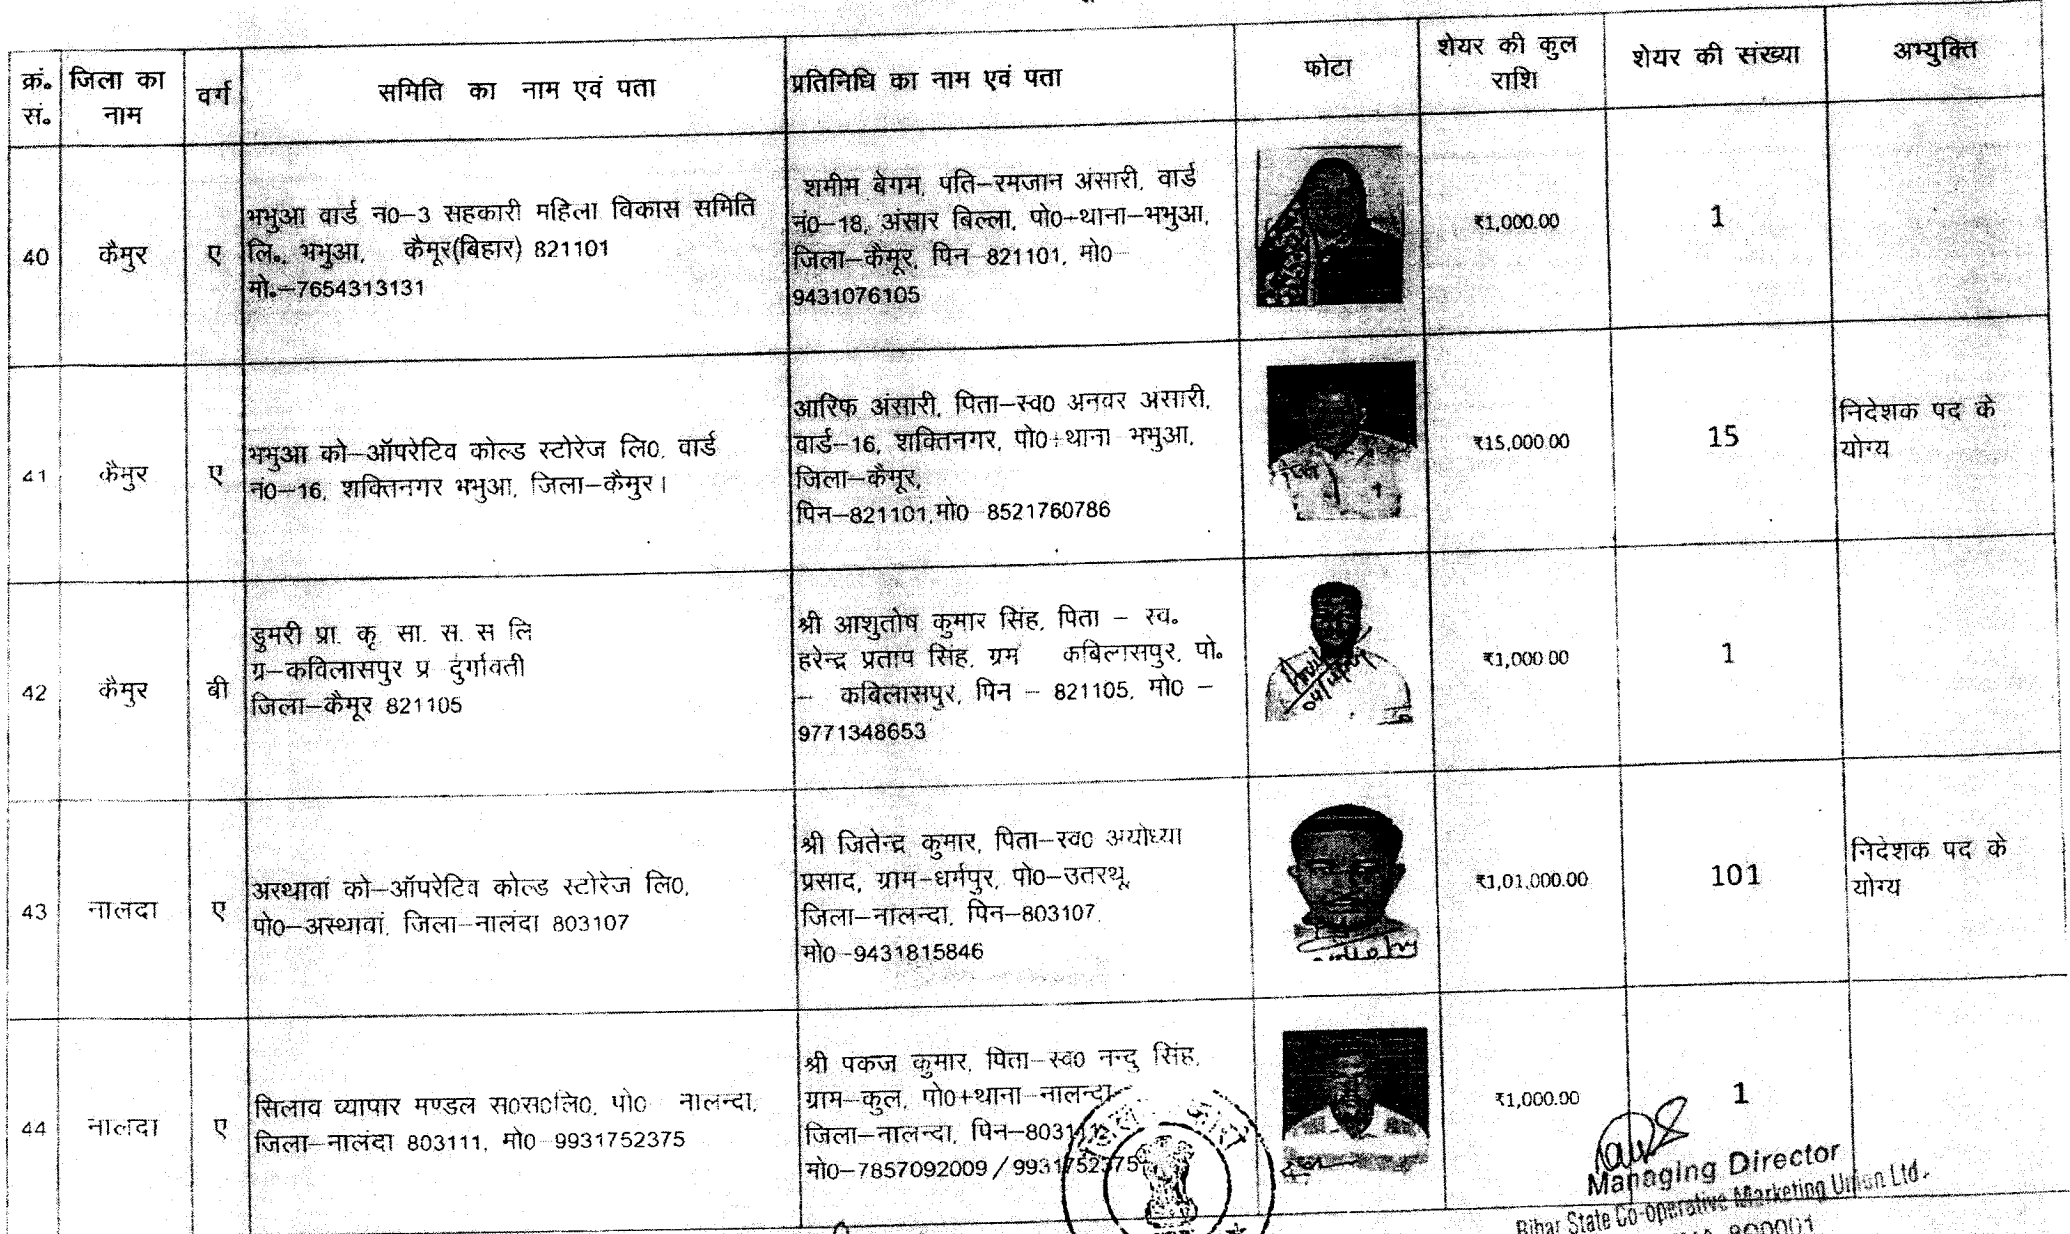 क्रं॰ सं॰
जिला का नाम
वर्ग
समिति का नाम एवं पता
प्रतिनिधि का नाम एवं पता
फोटा
शेयर की कुल राशि
शेयर की संख्या
अभ्युक्ति
40
कैमुर
ए
भभुआ वार्ड न0–3 सहकारी महिला विकास समिति
लि॰, भभुआ, कैमूर(बिहार) 821101
मो॰–7654313131
शमीम बेगम, पति–रमजान अंसारी, वार्ड
नं0–18, अंसार बिल्ला, पो0+थाना–भभुआ,
जिला–कैमूर, पिन–821101, मो0–
9431076105
₹1,000.00
1
41
कैमुर
ए
भभुआ को–ऑपरेटिव कोल्ड स्टोरेज लि0, वार्ड
नं0–16, शक्तिनगर भभुआ, जिला–कैमुर।
आरिफ अंसारी, पिता–स्व0 अनवर अंसारी,
वार्ड–16, शक्तिनगर, पो0+थाना भभुआ,
जिला–कैमूर,
पिन–821101,मो0 8521760786
₹15,000.00
15
निदेशक पद के
योग्य
42
कैमुर
बी
डुमरी प्रा. कृ. सा. स. स लि
ग्र–कविलासपुर प्र दुर्गावती
जिला–कैमूर 821105
श्री आशुतोष कुमार सिंह, पिता – स्व.
हरेन्द्र प्रताप सिंह, ग्रम कबिलासपुर, पो.
– कबिलासपुर, पिन – 821105, मो0 –
9771348653
₹1,000.00
1
43
नालदा
ए
अस्थावां को–ऑपरेटिव कोल्ड स्टोरेज लि0,
पो0–अस्थावां, जिला–नालंदा 803107
श्री जितेन्द्र कुमार, पिता–स्व0 अयोध्या
प्रसाद, ग्राम–धर्मपुर, पो0–उतरथू,
जिला–नालन्दा, पिन–803107,
मो0–9431815846
₹1,01,000.00
101
निदेशक पद के
योग्य
44
नालदा
ए
सिलाव व्यापार मण्डल स0स0लि0, पो0 नालन्दा,
जिला–नालंदा 803111, मो0 9931752375
श्री पकज कुमार, पिता–स्व0 नन्दु सिंह,
ग्राम–कुल, पो0+थाना–नालन्दा
जिला–नालन्दा, पिन–803111
मो0–7857092009/9931752375
₹1,000.00
1
Managing Director
Bihar State Co-operative Marketing Union Ltd.
800001